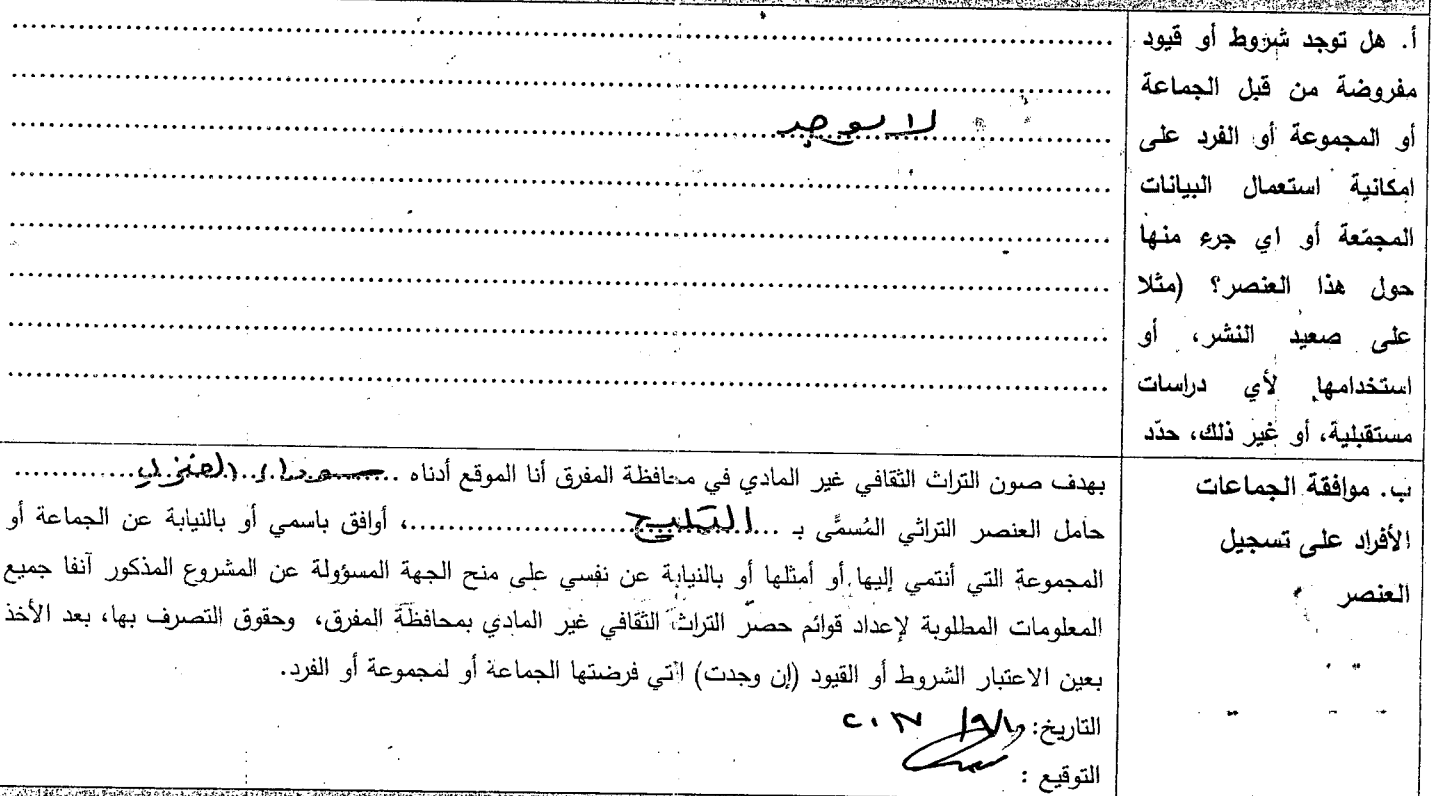 أ. هل توجد شروط أو قيود
مفروضة من قبل الجماعة
أو المجموعة أو الفرد على
امكانية استعمال البيانات
المجمّعة أو اي جرء منها
حول هذا العنصر؟ (مثلا
على صعيد النشر، أو
استخدامها لأي دراسات
مستقبلية، أو غير ذلك، حدّد
لا يوجد
ب. موافقة الجماعات
الأفراد على تسجيل
العنصر
بهدف صون التراث الثقافي غير المادي في محافظة المفرق أنا الموقع أدناه ..............
حامل العنصر التراثي المُسمَّى بـ ..............، أوافق باسمي أو بالنيابة عن الجماعة أو
المجموعة التي أنتمي إليها أو أمثلها أو بالنيابة عن نفسي على منح الجهة المسؤولة عن المشروع المذكور آنفا جميع
المعلومات المطلوبة لإعداد قوائم حصر التراث الثقافي غير المادي بمحافظة المفرق، وحقوق التصرف بها، بعد الأخذ
بعين الاعتبار الشروط أو القيود (إن وجدت) اتي فرضتها الجماعة أو لمجموعة أو الفرد.
التاريخ:
التوقيع :